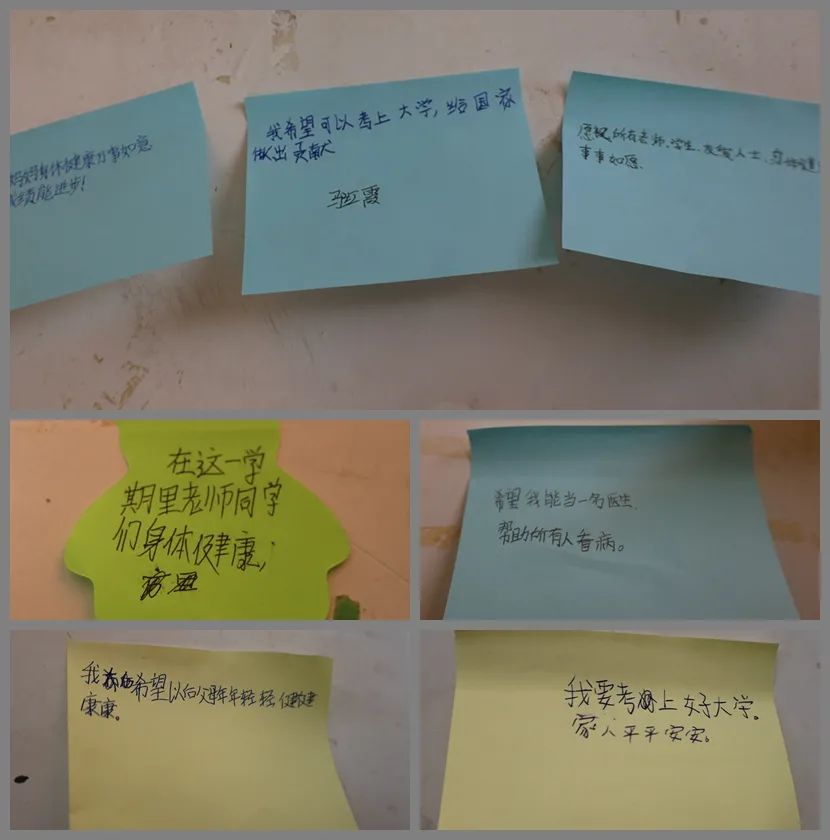 妈妈身体健康万事如意
成绩能进步!
我希望可以考上大学,给国家
做出贡献
马红霞
愿祝所有老师、学生、友爱人士、身体健
事事如愿.
在这一学
期里老师同学
们身体健康;
希望我能当一名医生.
帮助所有人看病。
我希望以后父母年年轻轻健健
康康。
我要考上好大学。
家人平平安安。